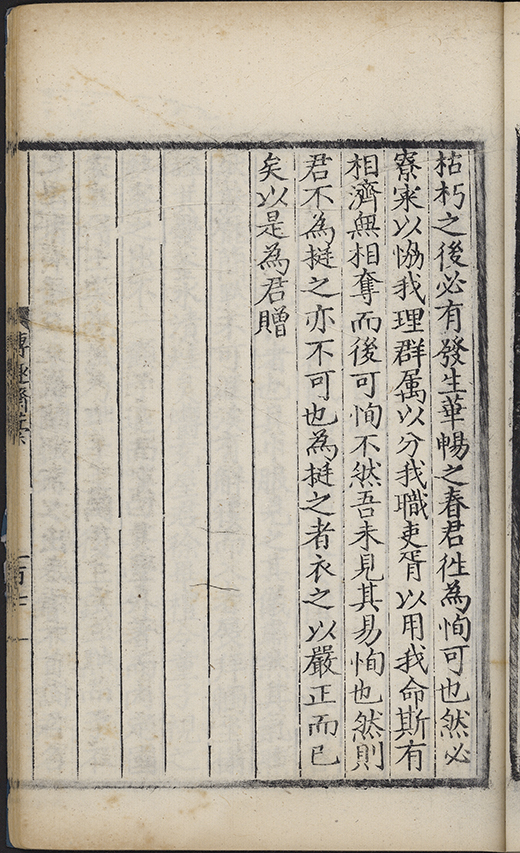 枯朽之後必有發生華暢之春君徃為恂可也然必
寮寀以恊我理群属以分我職吏胥以用我命斯有
相濟無相奪而後可恂不然吾未見其易恂也然則
君不為挺之亦不可也為挺之者衣之以嚴正而已
矣以是為君贈